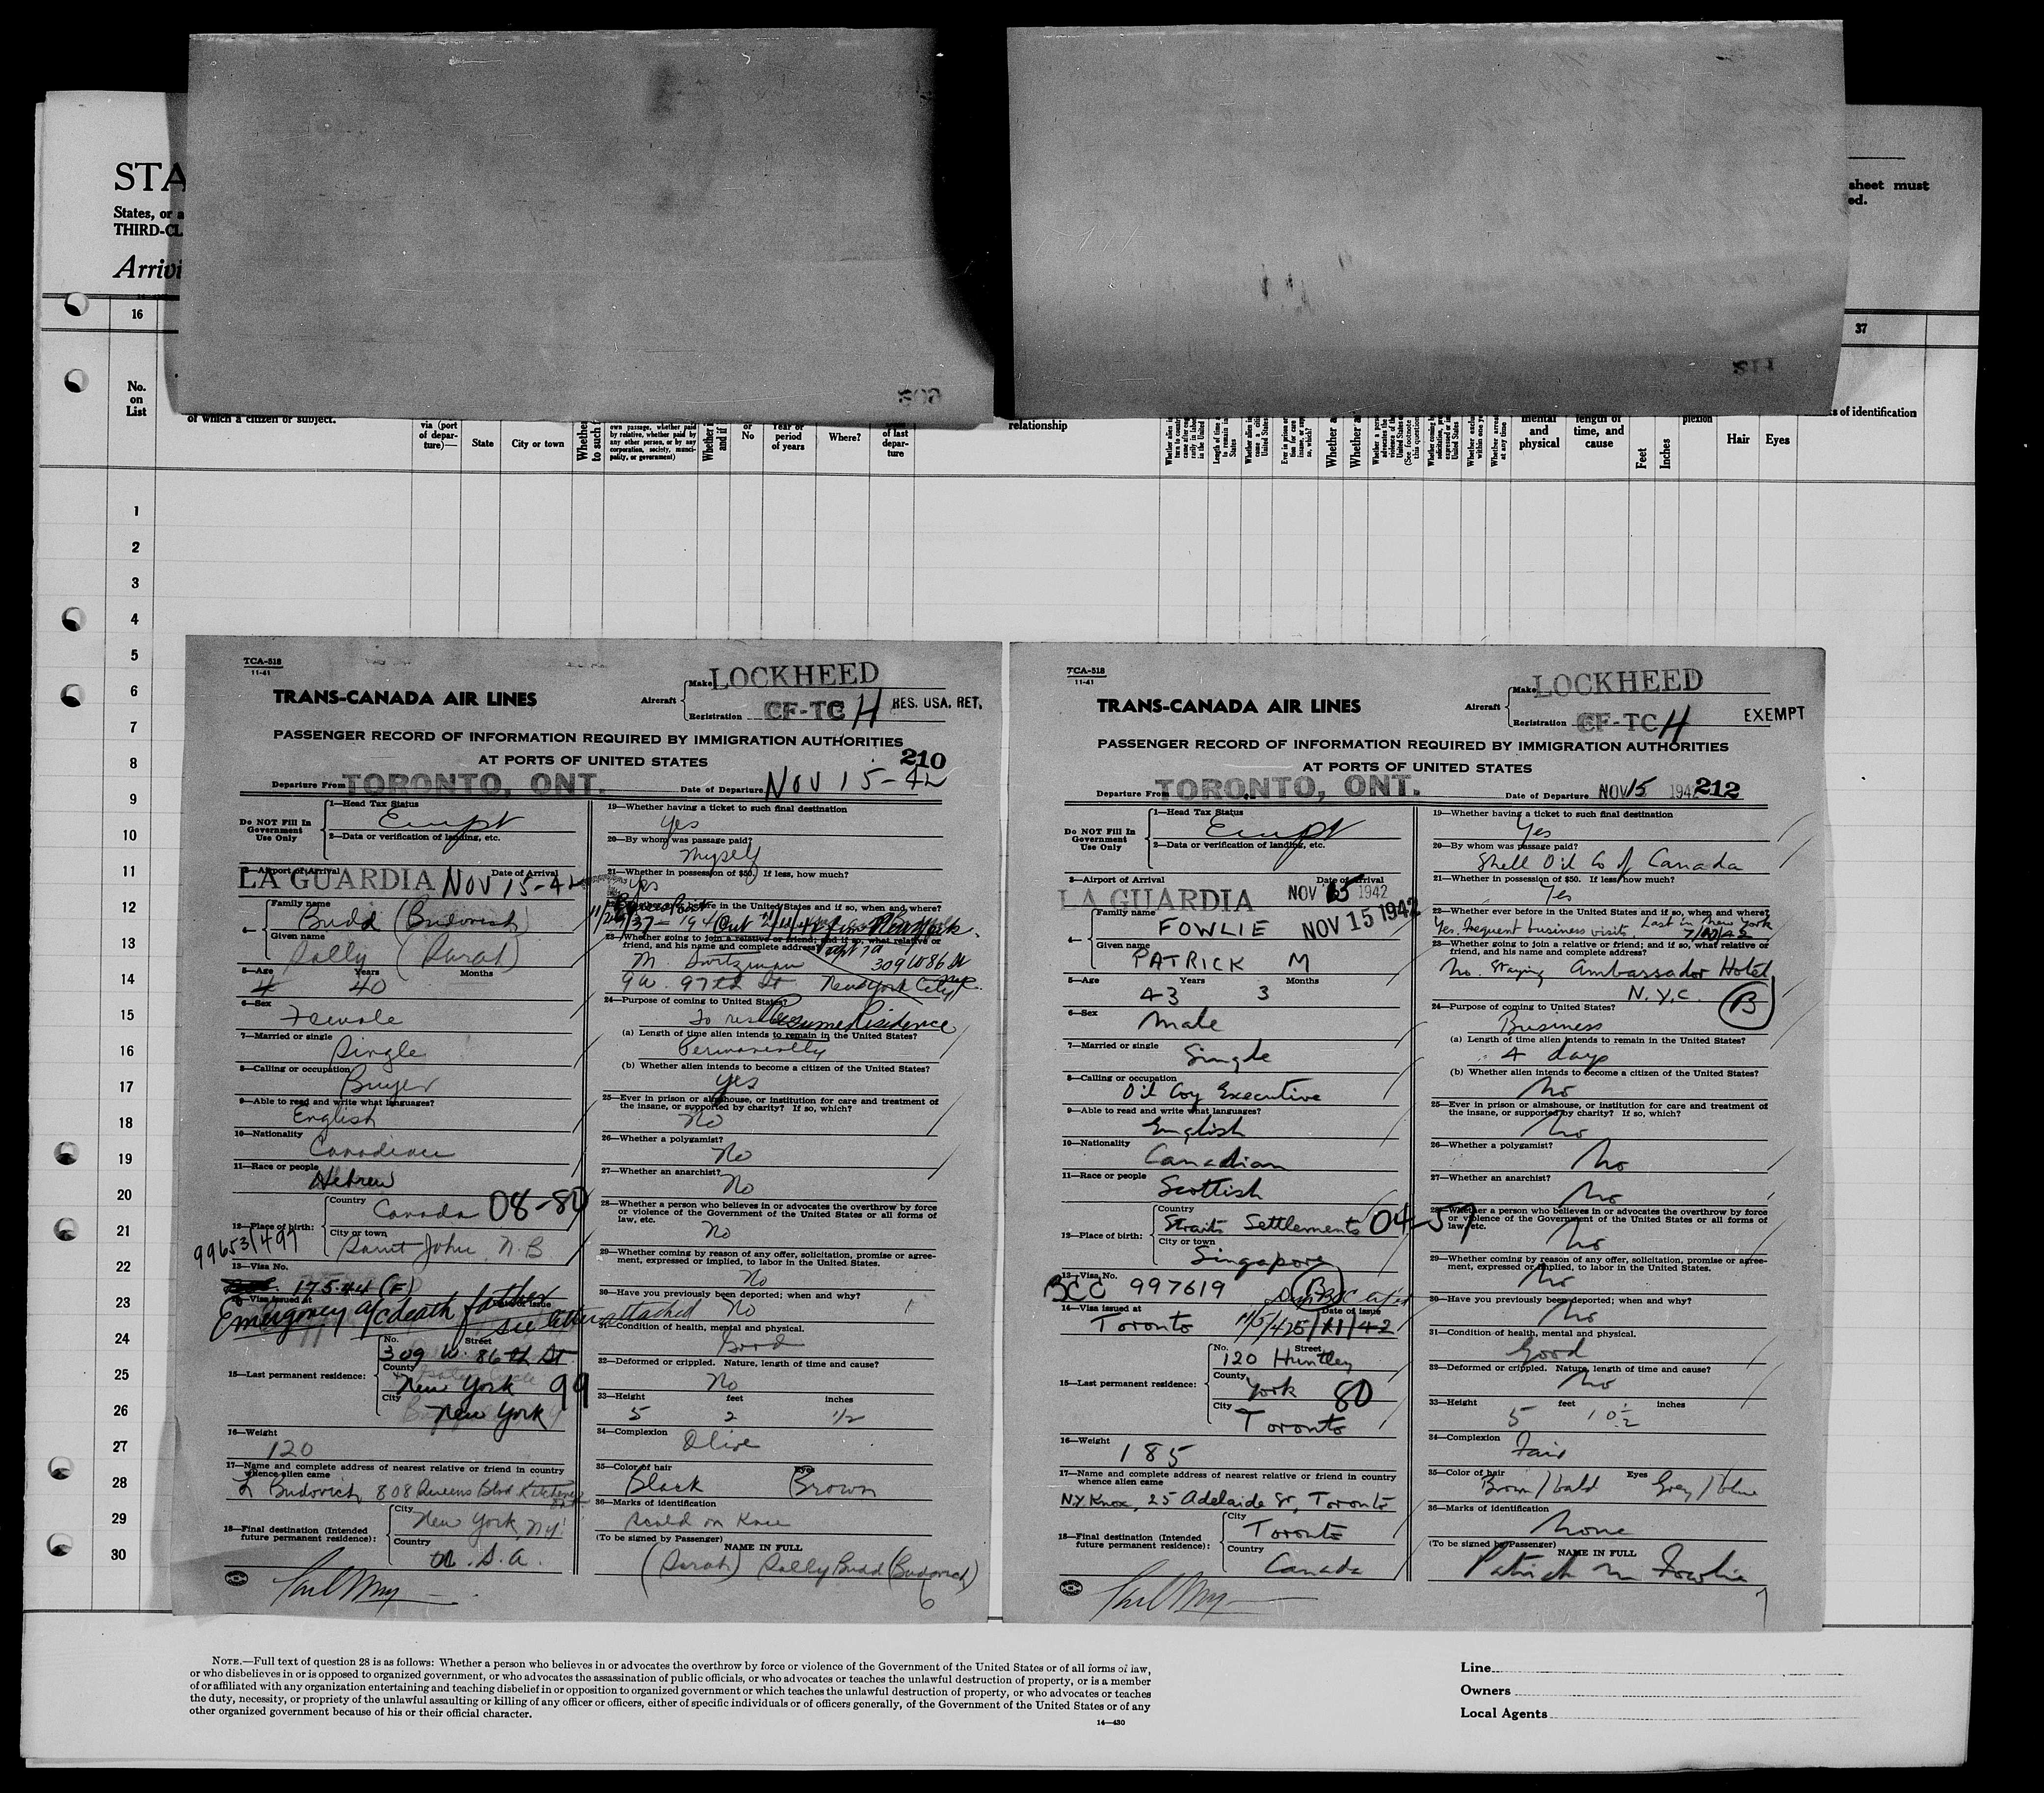 STA
States, or a
THIRD-CL
Arrivi
sheet must
ed.
16
37
No.
on
List
of which a citizen or subject.
via (port
of depar-
ture)—
State
City or town
Whether
to such
own passage, whether paid
by relative, whether paid by
any other person, or by any
corporation, society, munici-
pality, or government)
or
No
Year or
period
of years
Where?
of last
depar-
ture
relationship
mental
and
physical
length of
time, and
cause
Feet
Inches
plexion
Hair
Eyes
s of identification
1
2
3
4
5
6
7
8
9
10
11
12
13
14
15
16
17
18
19
20
21
22
23
24
25
26
27
28
29
30
TCA-518
11-41
TRANS-CANADA AIR LINES
Aircraft
Make LOCKHEED
Registration CF-TC H
RES. USA. RET.
PASSENGER RECORD OF INFORMATION REQUIRED BY IMMIGRATION AUTHORITIES
AT PORTS OF UNITED STATES
210
Departure From TORONTO, ONT.
Date of Departure NOV 15-42
Do NOT Fill In
Government
Use Only
1—Head Tax Status
Exempt
2—Data or verification of landing, etc.
3—Airport of Arrival
Date of Arrival
LA GUARDIA NOV 15-42
4—
Family name
Budd (Budovich)
Given name
Sally (Sarah)
5—Age Years Months
40
6—Sex
Female
7—Married or single
Single
8—Calling or occupation
Buyer
9—Able to read and write what languages?
English
10—Nationality
Canadian
11—Race or people
Hebrew
12—Place of birth:
Country
Canada 08-80
City or town
Saint John, N.B
99653/497
13—Visa No.
175.44 (F)
14—Visa issued at
Date of issue
Emergency a/c death father
see letter attached
15—Last permanent residence:
No. Street
309 W. 86th St
County
New York 99
City
New York
16—Weight
120
17—Name and complete address of nearest relative or friend in country
whence alien came
L Budovich 808 Queens Blvd Kitchener
Ont
18—Final destination (Intended
future permanent residence):
City
New York, N.Y.
Country
U.S.A.
19—Whether having a ticket to such final destination
Yes
20—By whom was passage paid?
Myself
21—Whether in possession of $50. If less, how much?
Yes
22—Whether ever before in the United States and if so, when and where?
23—Whether going to join a relative or friend; and if so, what relative or
friend, and his name and complete address?
M. Switzman
309 W 86 St
9 W. 97th St New York City
24—Purpose of coming to United States?
Resume Residence
(a) Length of time alien intends to remain in the United States?
Permanently
(b) Whether alien intends to become a citizen of the United States?
Yes
25—Ever in prison or almshouse, or institution for care and treatment of
the insane, or supported by charity? If so, which?
No
26—Whether a polygamist?
No
27—Whether an anarchist?
No
28—Whether a person who believes in or advocates the overthrow by force
or violence of the Government of the United States or all forms of
law, etc.
No
29—Whether coming by reason of any offer, solicitation, promise or agree-
ment, expressed or implied, to labor in the United States.
No
30—Have you previously been deported; when and why?
No
31—Condition of health, mental and physical.
Good
32—Deformed or crippled. Nature, length of time and cause?
No
33—Height feet inches
5 2 1/2
34—Complexion
Olive
35—Color of hair Eyes
Black Brown
36—Marks of identification
Scald on Knee
(To be signed by Passenger)
NAME IN FULL
(Sarah) Sally Budd (Budovich)
6
TCA-518
11-41
TRANS-CANADA AIR LINES
Aircraft
Make LOCKHEED
Registration CF-TC H
EXEMPT
PASSENGER RECORD OF INFORMATION REQUIRED BY IMMIGRATION AUTHORITIES
AT PORTS OF UNITED STATES
Departure From TORONTO, ONT.
Date of Departure NOV 15 1942
212
Do NOT Fill In
Government
Use Only
1—Head Tax Status
Exempt
2—Data or verification of landing, etc.
3—Airport of Arrival
Date of Arrival
LA GUARDIA NOV 15 1942
NOV 15 1942
4—
Family name
FOWLIE
Given name
PATRICK M
5—Age Years Months
43 3
6—Sex
Male
7—Married or single
Single
8—Calling or occupation
Oil Coy Executive
9—Able to read and write what languages?
English
10—Nationality
Canadian
11—Race or people
Scottish
12—Place of birth:
Country
Straits Settlements 04-57
City or town
Singapore
13—Visa No.
BCC 997619
14—Visa issued at
Date of issue
Toronto
15—Last permanent residence:
No. Street
120 Huntley
County
York 80
City
Toronto
16—Weight
185
17—Name and complete address of nearest relative or friend in country
whence alien came
N.Y. Knox, 25 Adelaide St, Toronto
18—Final destination (Intended
future permanent residence):
City
Toronto
Country
Canada
19—Whether having a ticket to such final destination
Yes
20—By whom was passage paid?
Shell Oil Co of Canada
21—Whether in possession of $50. If less, how much?
Yes
22—Whether ever before in the United States and if so, when and where?
Yes. Frequent business visits Last in New York
23—Whether going to join a relative or friend; and if so, what relative or
friend, and his name and complete address?
No. Staying Ambassador Hotel
N.Y.C. B
24—Purpose of coming to United States?
Business
(a) Length of time alien intends to remain in the United States?
4 days
(b) Whether alien intends to become a citizen of the United States?
No
25—Ever in prison or almshouse, or institution for care and treatment of
the insane, or supported by charity? If so, which?
No
26—Whether a polygamist?
No
27—Whether an anarchist?
No
28—Whether a person who believes in or advocates the overthrow by force
or violence of the Government of the United States or all forms of
law, etc.
No
29—Whether coming by reason of any offer, solicitation, promise or agree-
ment, expressed or implied, to labor in the United States.
No
30—Have you previously been deported; when and why?
No
31—Condition of health, mental and physical.
Good
32—Deformed or crippled. Nature, length of time and cause?
No
33—Height feet inches
5 10 1/2
34—Complexion
Fair
35—Color of hair Eyes
Brown/bald Grey/blue
36—Marks of identification
None
(To be signed by Passenger)
NAME IN FULL
Patrick M Fowlie
7
NOTE.—Full text of question 28 is as follows: Whether a person who believes in or advocates the overthrow by force or violence of the Government of the United States or of all forms of law,
or who disbelieves in or is opposed to organized government, or who advocates the assassination of public officials, or who advocates or teaches the unlawful destruction of property, or is a member
of or affiliated with any organization entertaining and teaching disbelief in or opposition to organized government or which teaches the unlawful destruction of property, or who advocates or teaches
the duty, necessity, or propriety of the unlawful assaulting or killing of any officer or officers, either of specific individuals or of officers generally, of the Government of the United States or of any
other organized government because of his or their official character.
14—430
Line
Owners
Local Agents